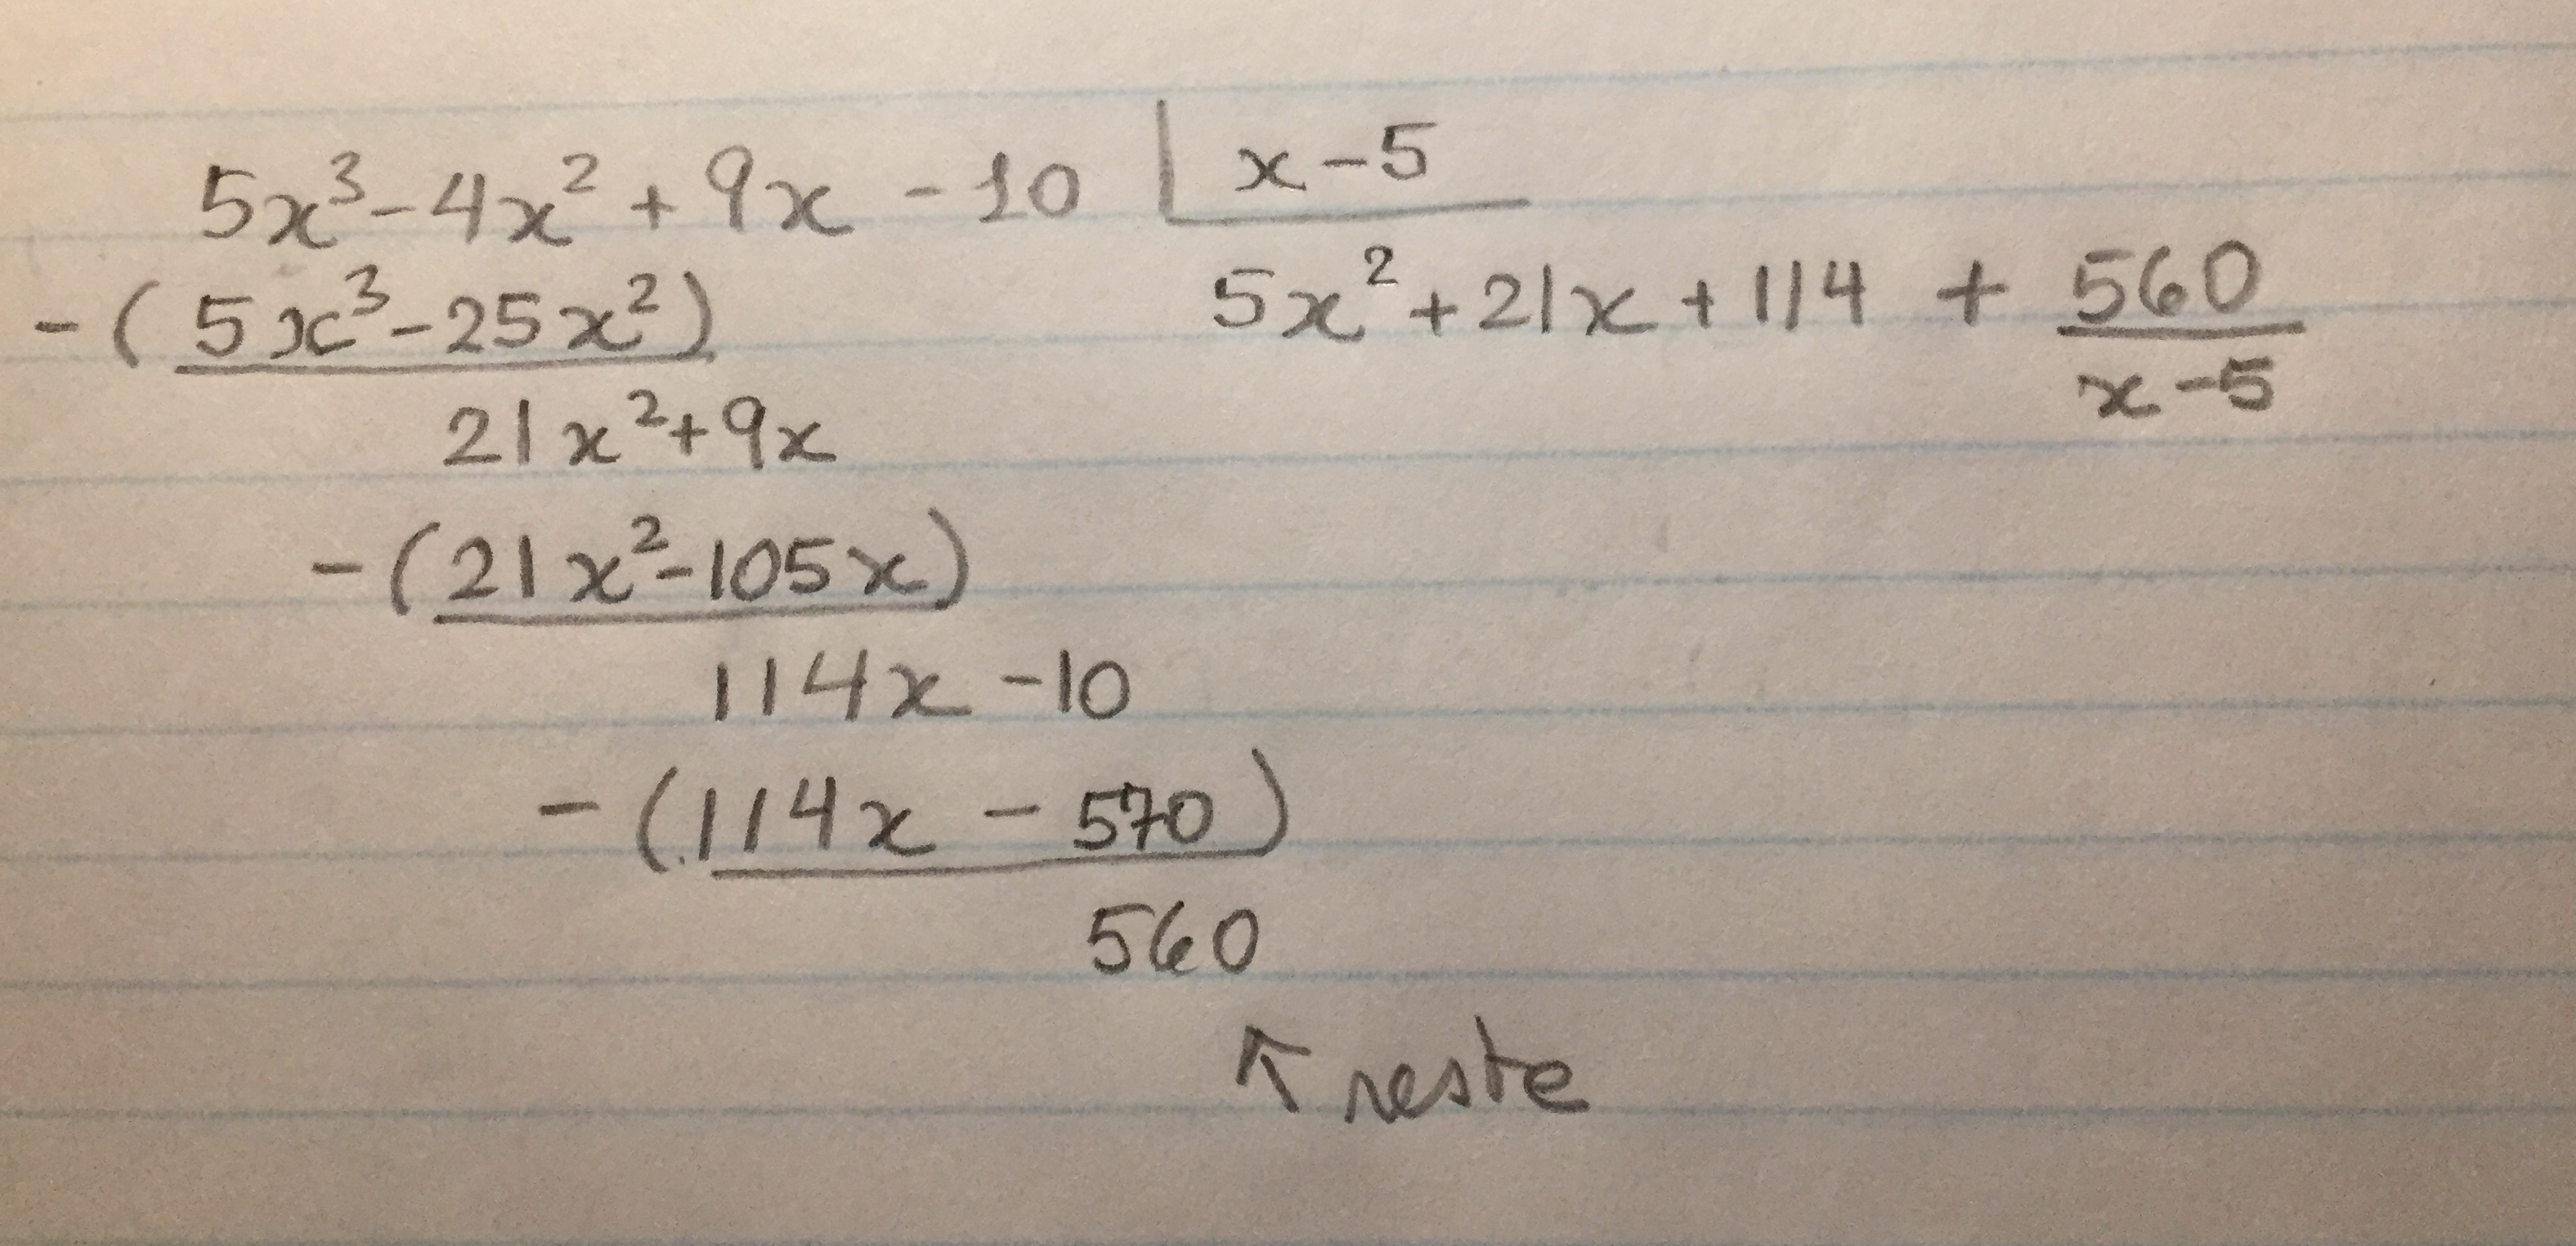 5x³-4x²+9x -10 | x-5
-(5x³-25x²) 5x²+21x+114 + 560/x-5
21x²+9x
-(21x²-105x)
114x -10
-(114x - 570)
560
↑ reste